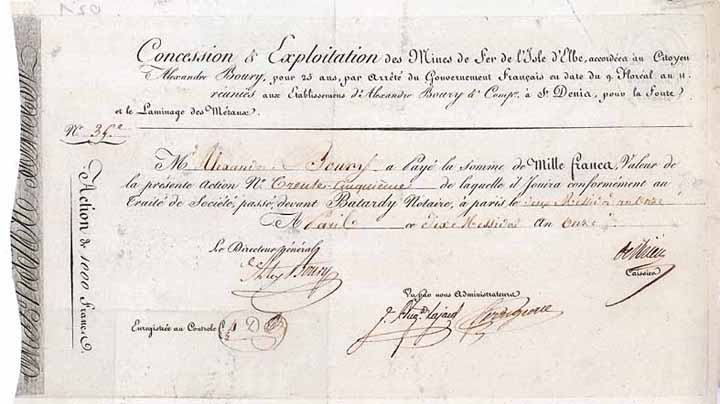 Concession & Exploitation des Mines de Fer de l'Isle d'Elbe, accordées au Citoyen
Alexandre Boury, pour 25 ans, par Arrêté du Gouvernement Français en date du 9 Floréal an 11
réunies aux Etablissemens d'Alexandre Boury & Comp.e à St Denis, pour la Fonte
et le Laminage des Métaux.
N.º 35.e
Action de 1000 Francs.
M. Alexandre Boury a Payé la somme de Mille francs, Valeur de
la présente Action N.º Trente Cinquième de laquelle il Jouira conformément au
Traité de Société, passé devant Batardy Notaire, à paris le deux Messidor an onze
A Paris ce Dix Messidor An Onze
Le Directeur général
Alex Boury
Caissier
Vu par nous Administrateurs
Enregistrée au Controle f.º